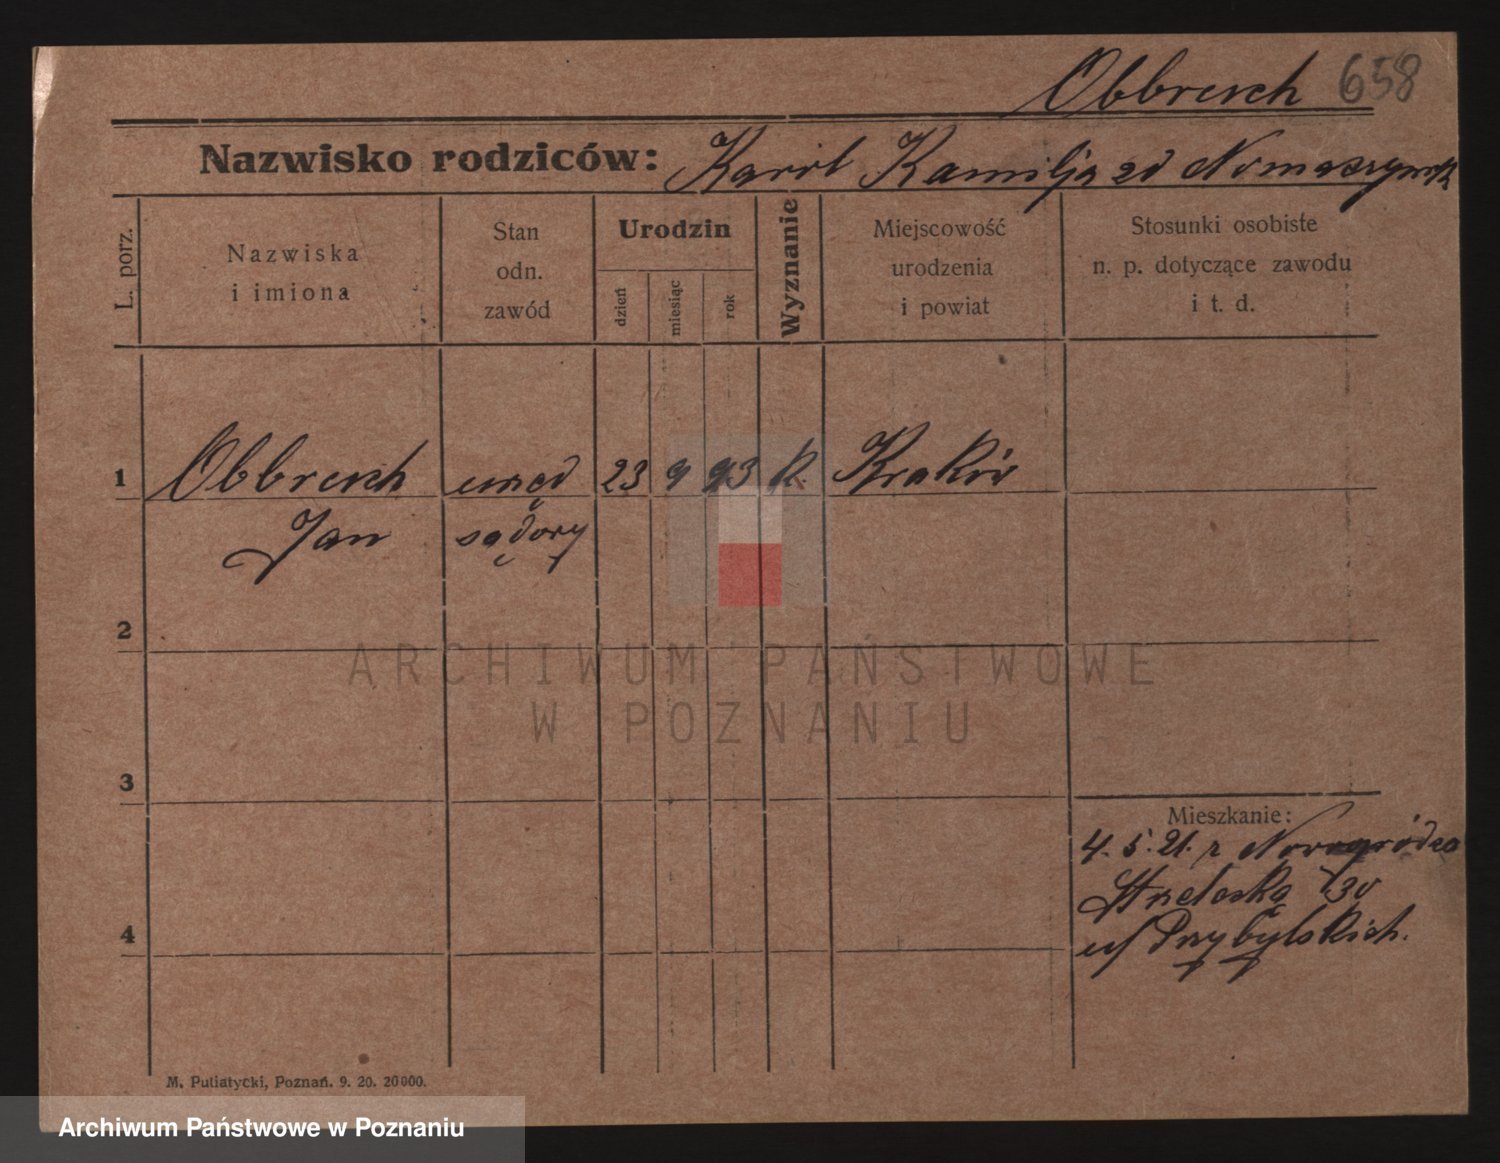 Obbresch 658
Nazwisko rodziców: Karol Kamilja zd
L. porz.
Nazwiska
i imiona
Stan
odn.
zawód
Urodzin
dzień
miesiąc
rok
Wyznanie
Miejscowość
urodzenia
i powiat
Stosunki osobiste
n. p. dotyczące zawodu
i t. d.
1 Obbresch urzęd 23 9 93 k. Kraków
Jan sądowy
2
3
4
Mieszkanie:
4. 5. 21. z Nowogródca
Strzelecka 30
u/ Przybylskich.
M. Putiatycki, Poznań. 9. 20. 20000.
ARCHIWUM PAŃSTWOWE
W POZNANIU
Archiwum Państwowe w Poznaniu